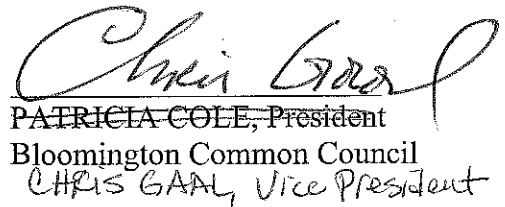 Chris Gaal
PATRICIA COLE, President
Bloomington Common Council
CHRIS GAAL, Vice President